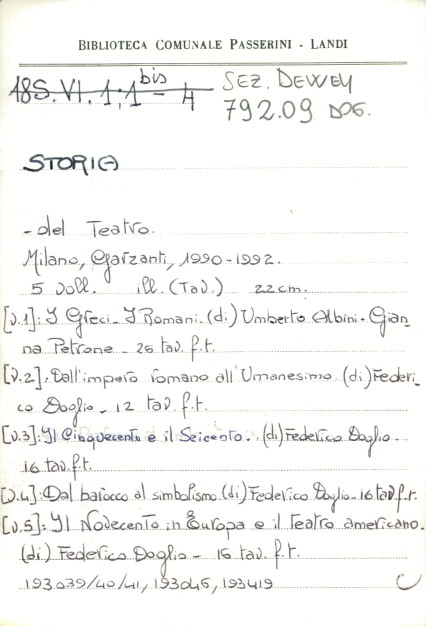 BIBLIOTECA COMUNALE PASSERINI - LANDI
18S. VI. 1, 1 bis - 4
SEZ. DEWEY
792.09 DOG.
STORIA
- del Teatro.
Milano, Garzanti, 1990-1992.
5 voll. ill. (Tav.) 22 cm.
[v.1]: I Greci - I Romani. (di) Umberto Albini - Gian_
na Petrone - 26 tav. f.t.
[v.2]. Dall'impero romano all'Umanesimo. (di) Federi_
co Doglio - 12 tav. f.t.
[v.3]: Il Cinquecento e il Seicento. (di) Federico Doglio -
16 tav. f.t.
[v.4]: Dal barocco al simbolismo. (di) Federico Doglio - 16 tav. f.t.
[v.5]: Il Novecento in Europa e il teatro americano.
(di) Federico Doglio - 16 tav. f.t.
193039/40/41, 193046, 193419